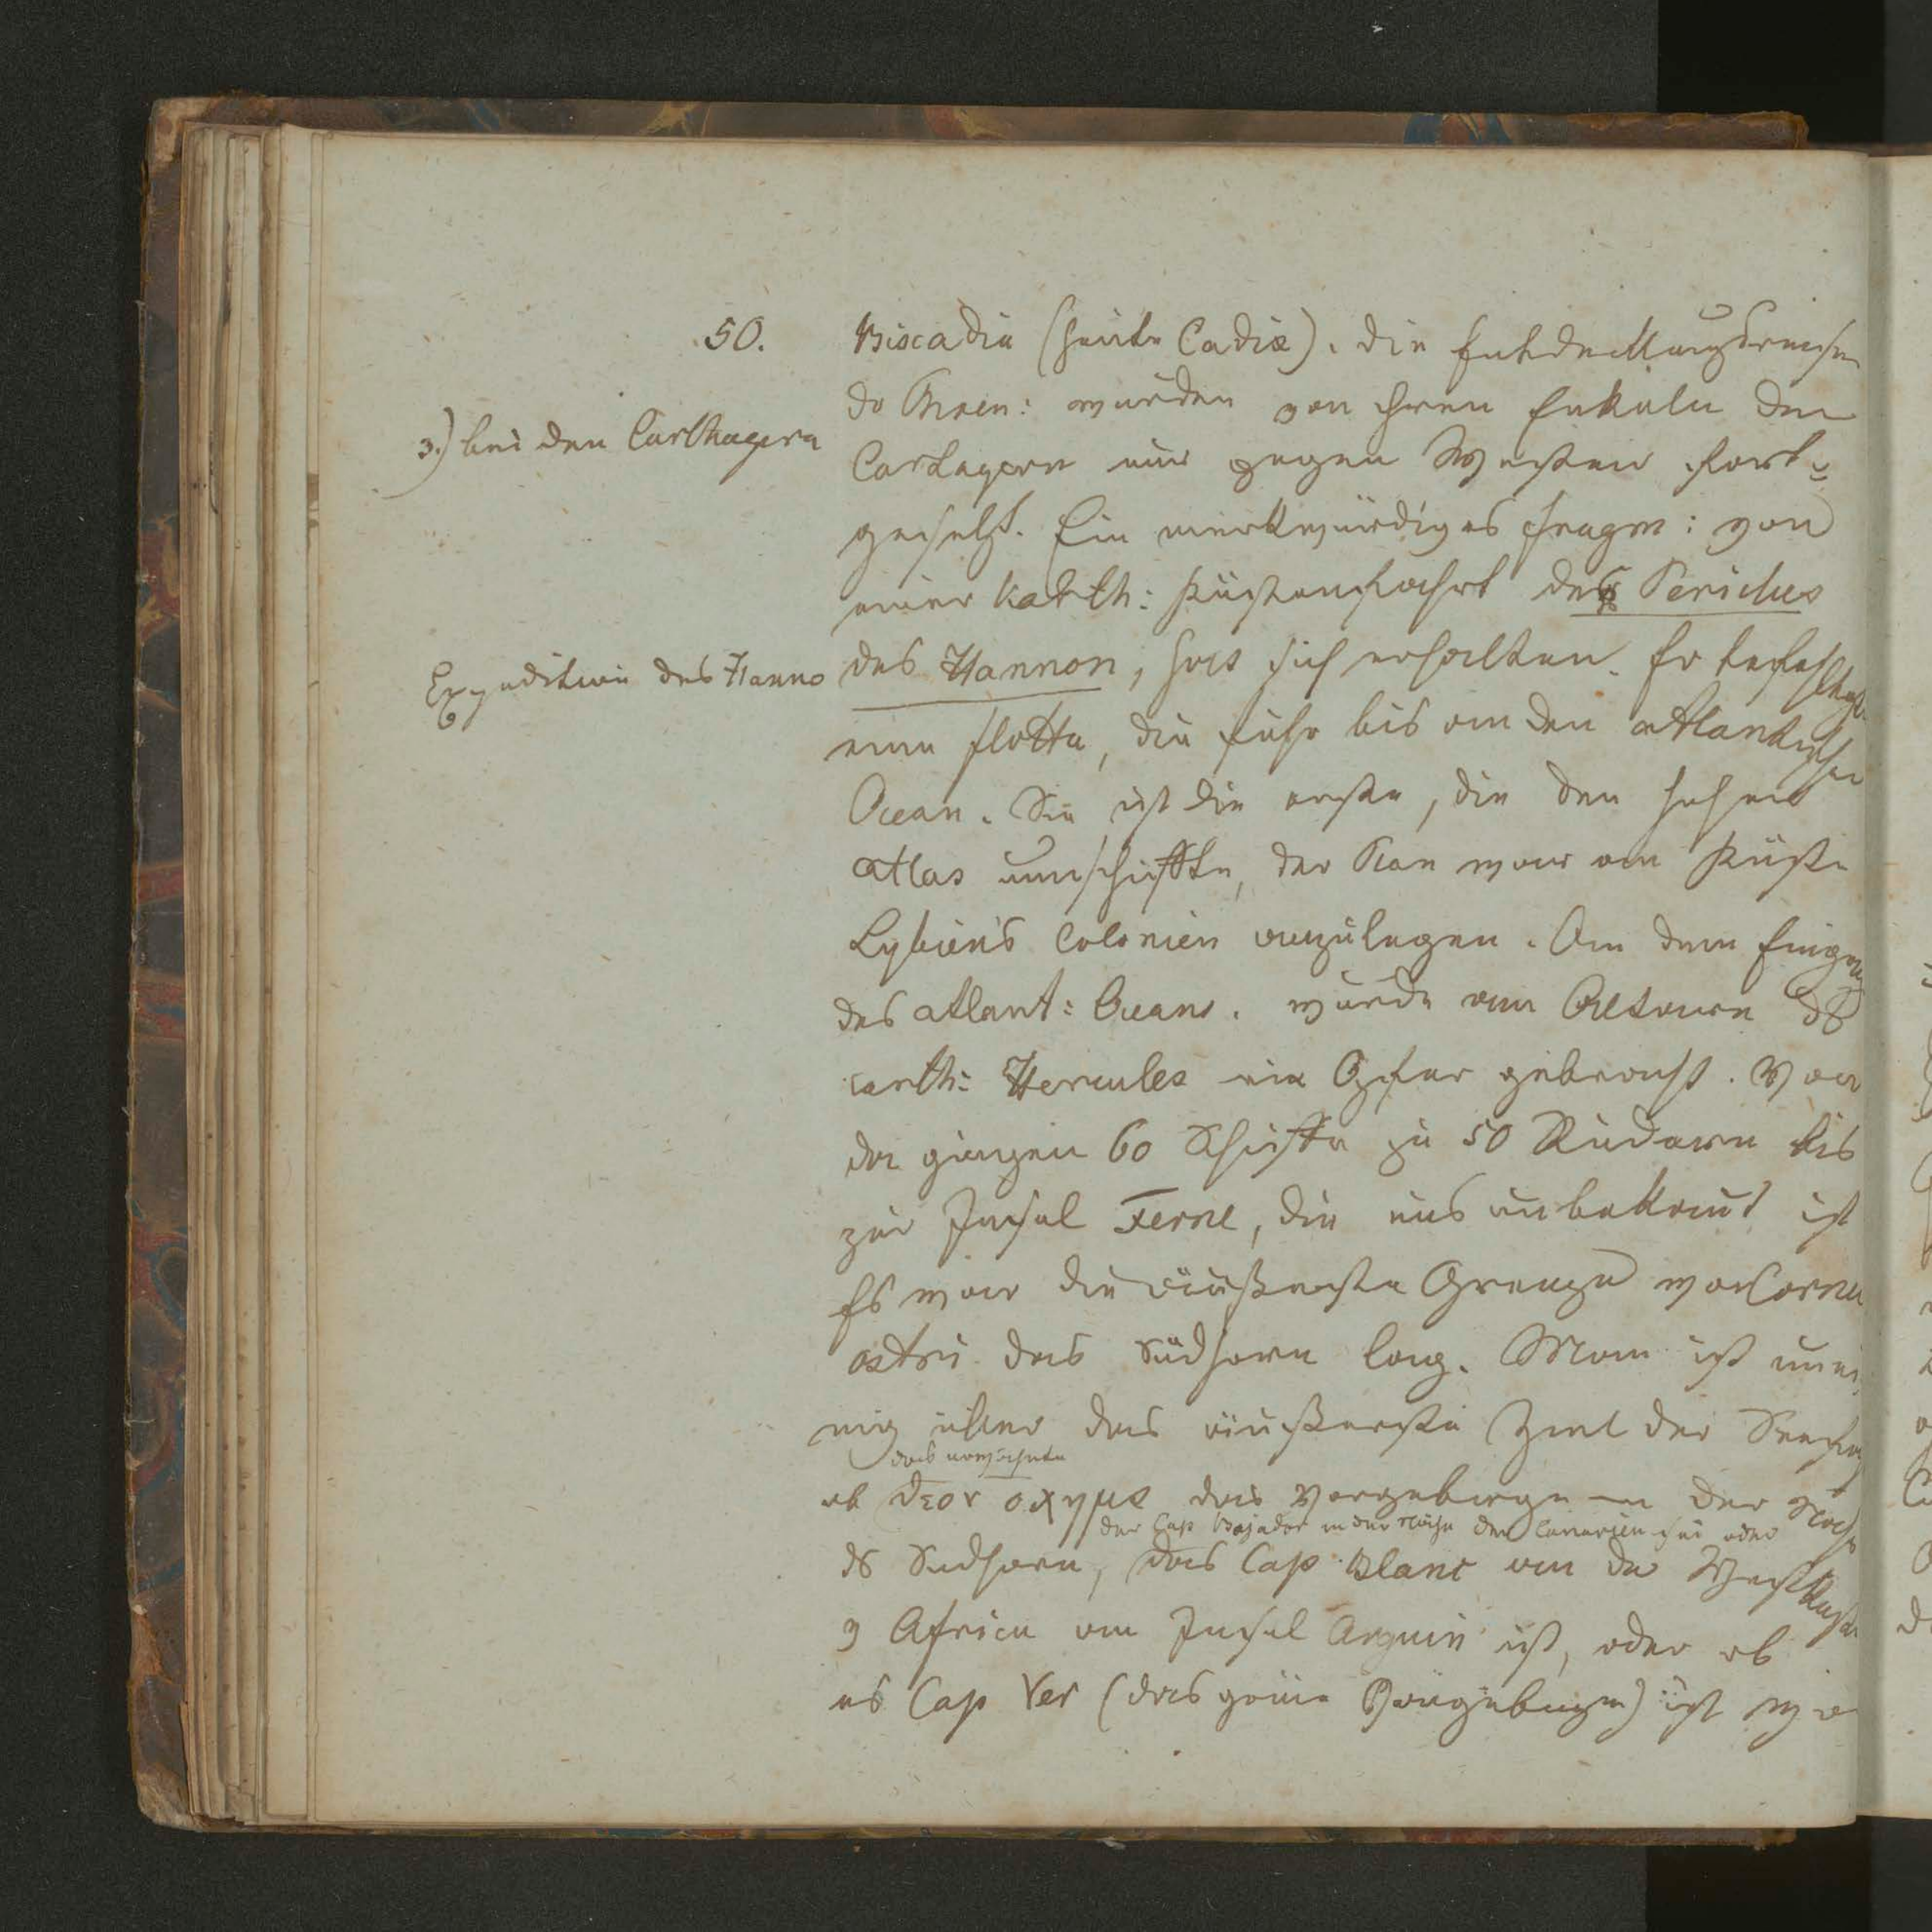 50.
Biscadia (heute Cadix). die Entdeckungsreisen
3.) bei den Carthagern
dr Phoen: wurden von ihren Enkeln den
Cartagern nur gegen Westen fort=
gesetzt. Ein merkwürdiges Fragm: von
einer karth: Küstenfahrt der Periclus
Expedition des Hanno
des Hannon, hat sich erhalten. Er befehligte
eine Flotte, die fuhr bis an den atlantischen
Ocean. Sie ist die erste, die den hohen
atlas umschiffte, der Plan war an Küste
Lybien's Colonien anzulegen. An dem Eingang
des atlant: Oceans. wurde am Altare ds
carth: Hercules ein Opfer gebracht. Von
da gingen 60 Schiffe zu 50 Rudern bis
zur Insel Ferne, die uns unbekannt ist
Es war die äußerste Grenze wo Cornu
ostri das Südhorn lag. Man ist unei
nig über das äußerste Ziel der
das erwähnte
ob θεον οχημα das Vorgebirge in der Nähe
der Cap Bojador in der Nähe der Canarien sei oder
ds Südhorn, das Cap Blanc an der Westküste
v Africa an Insel Arguin ist, oder ob
es Cap Ver (das grüne Vorgebirge) ist